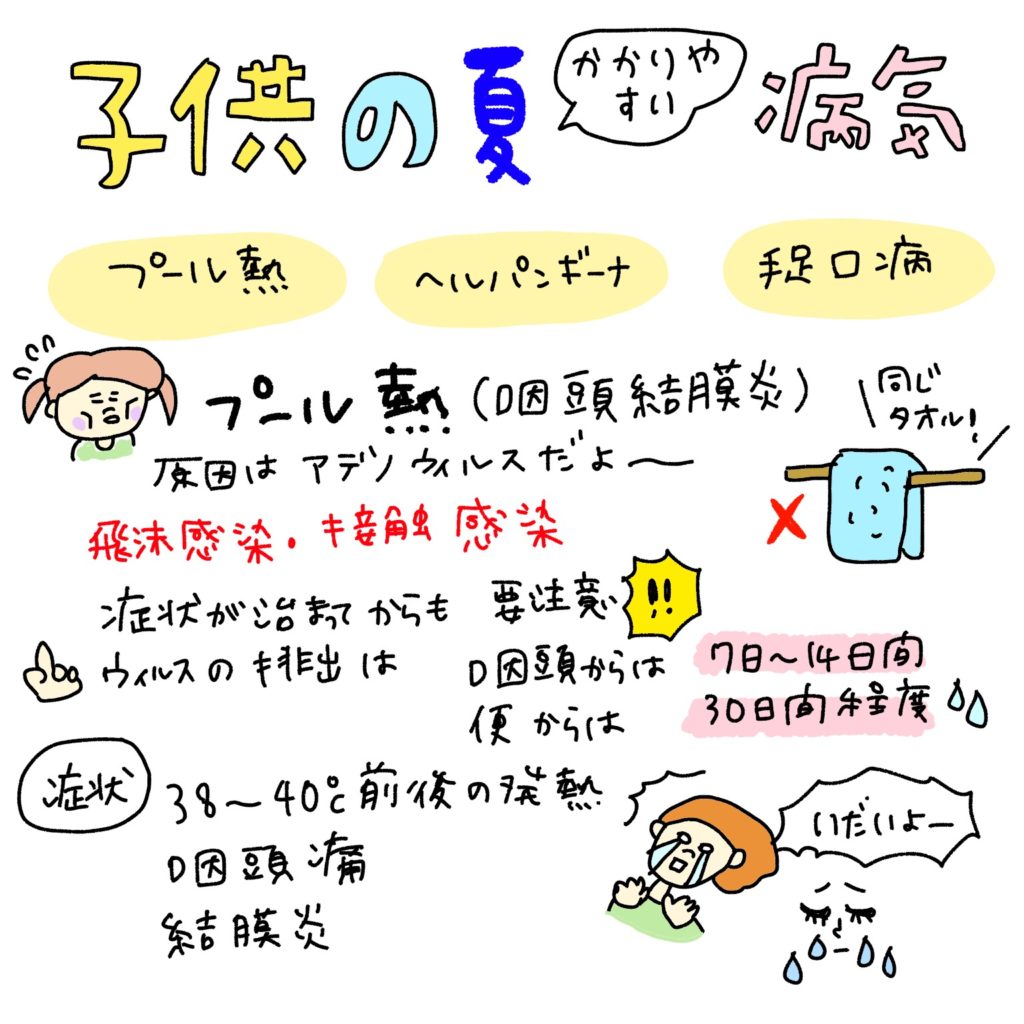 子供の夏かかりやすい病気
プール熱 ヘルパンギーナ 手足口病
プール熱(咽頭結膜炎)
同じ
タオル!
原因はアデノウィルスだよ〜
飛沫感染・接触感染
症状が治まってからも 要注意!!
ウィルスの排出は 咽頭からは 7日〜14日間
便からは 30日間程度
症状 38〜40℃前後の発熱
咽頭痛
結膜炎
いだいよー